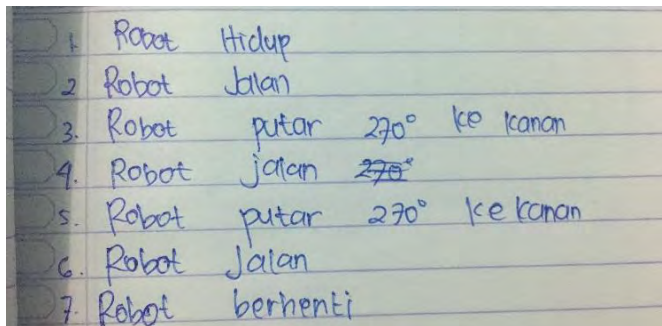 1. Robot Hidup
2 Robot Jalan
3. Robot putar 270° ke kanan
4. Robot jalan ~~270°~~
5. Robot putar 270° ke kanan
6. Robot Jalan
7. Robot berhenti